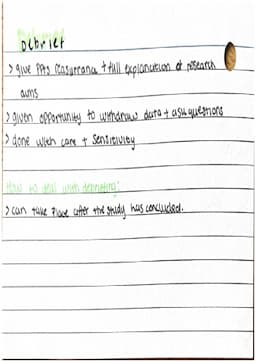 Debrief
> give PPts reassurance + full explanation of research
aims
> given opportunity to withdraw data + ask questions
> done with care + sensitivity
How to deal with debriefing:
> can take place after the study has concluded.